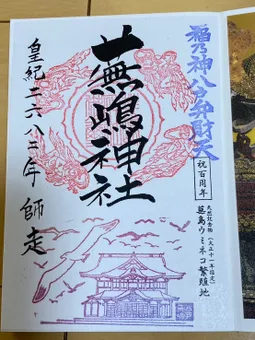 福乃神八戸弁財天
祝百周年
天然記念物(大正十一年指定)
蕪島ウミネコ繁殖地
蕪嶋神社
皇紀二六八二年 師走